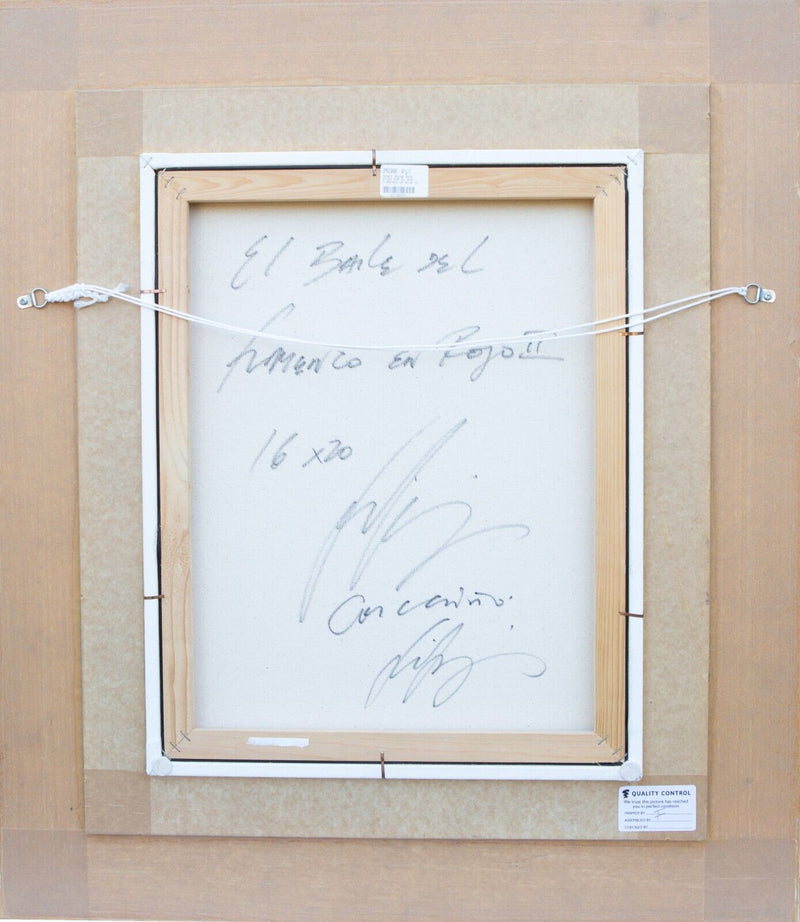 El Baile del
flamenco en Rojo II
16 x 20
Con cariño.
QUALITY CONTROL
We trust this picture has reached
you in perfect condition
FRAMED BY
ASSEMBLED BY
CHECKED BY